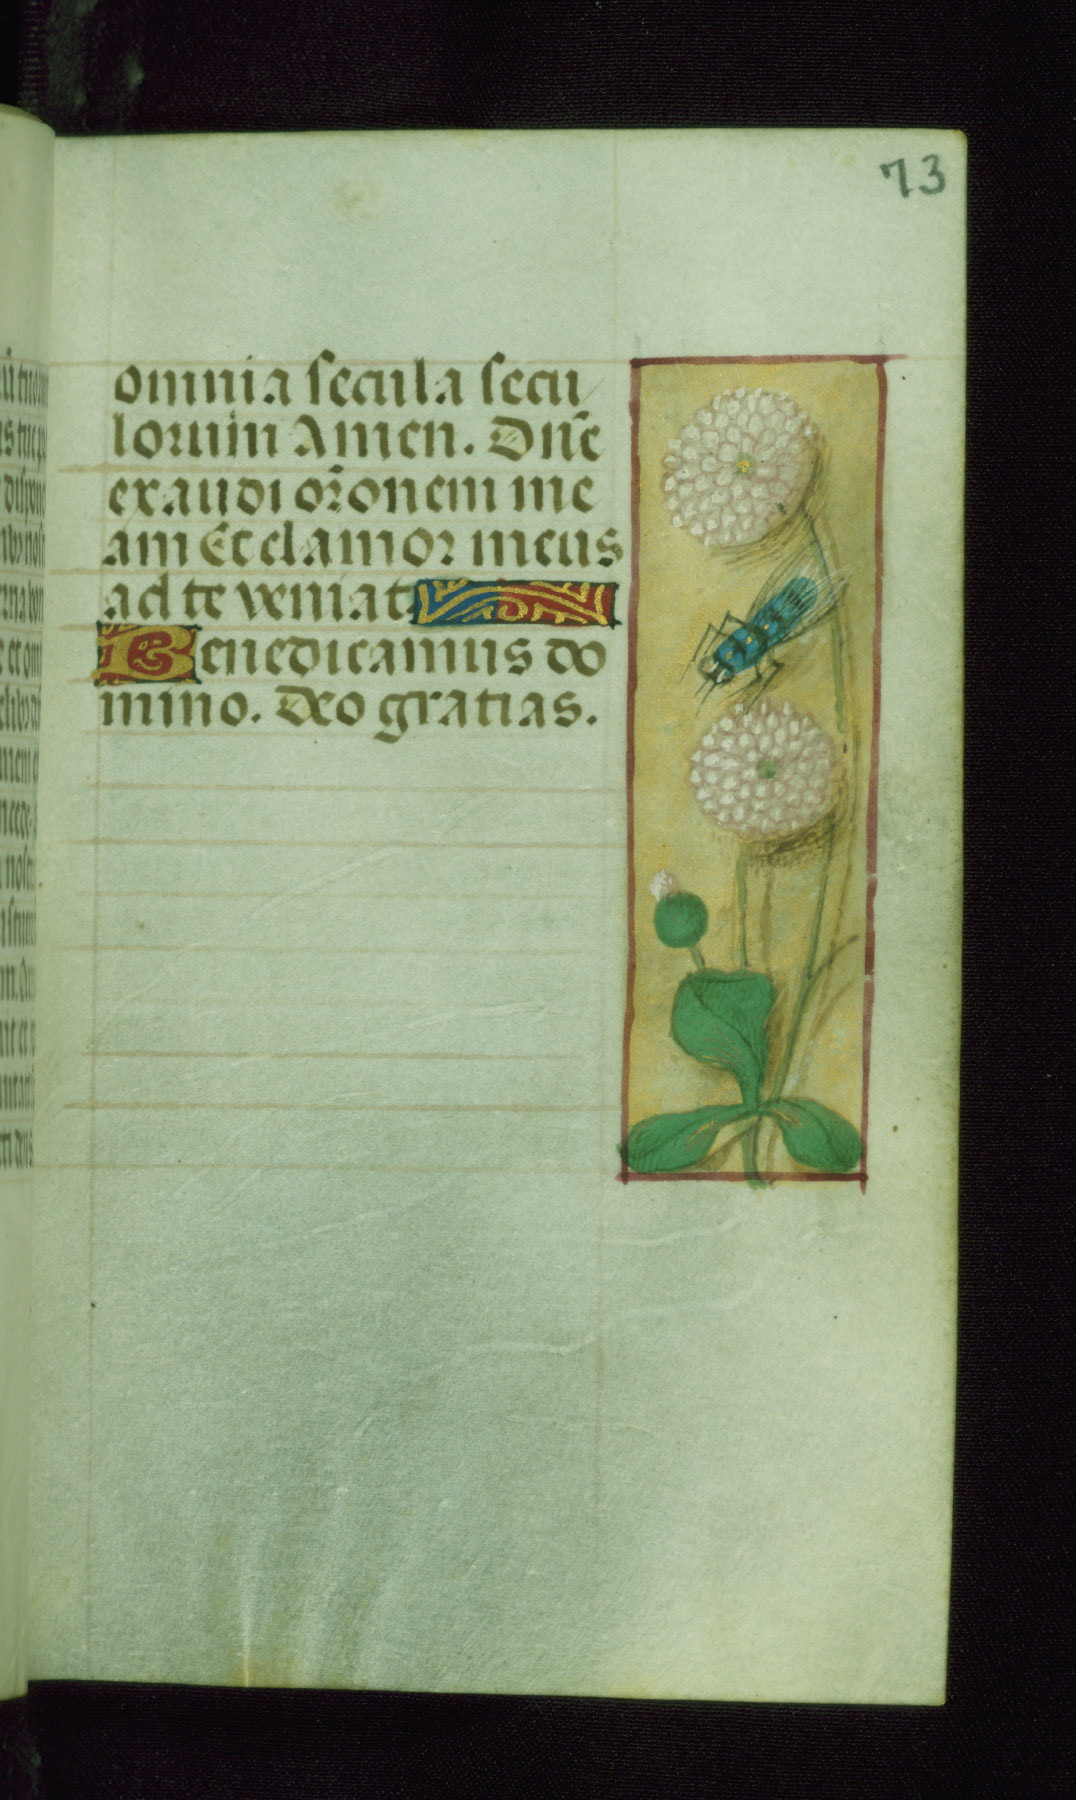 73
omnia secula secu
lorum Amen. Dñe
exaudi or̃onem me
am Et clamor meus
ad te veniat
Benedicamus do
mino. Deo gratias.